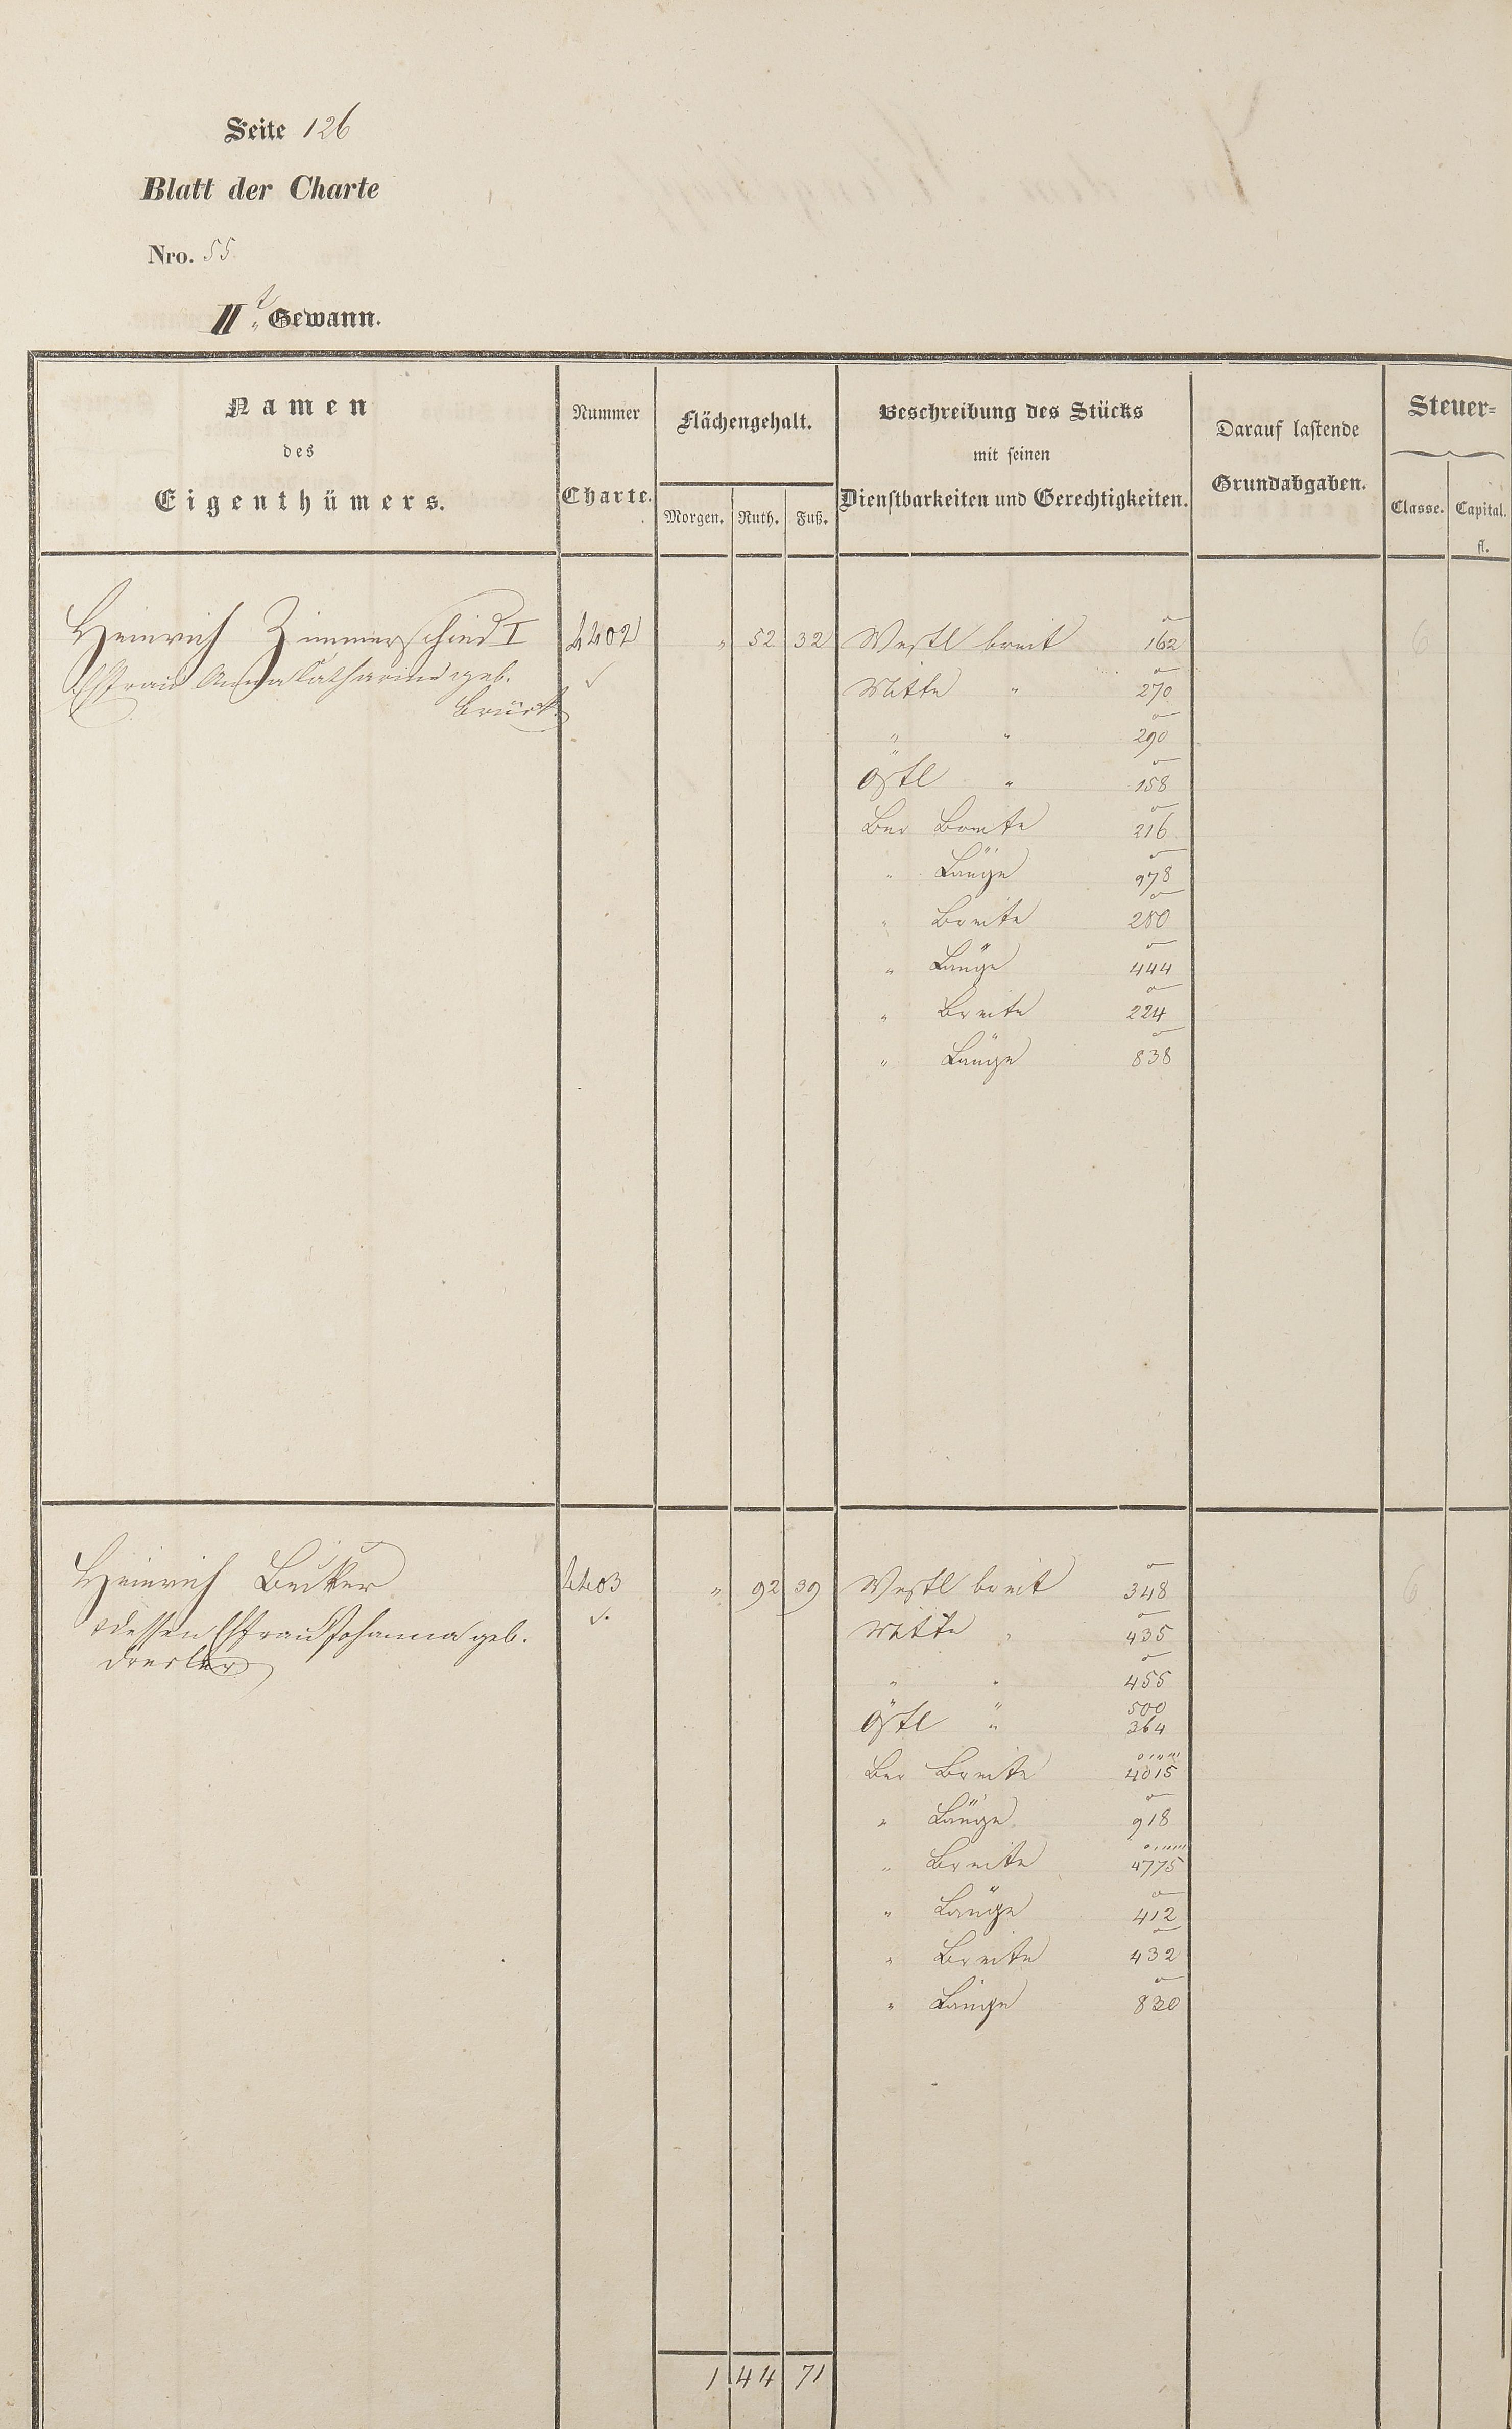 Seite 126
Blatt der Charte
Nro. 55
II.t Gewann.
Namen des Eigenthümers.
Nummer Charte.
Flächengehalt.
Morgen. Ruth. Fuß.
Beschreibung des Stücks mit seinen Dienstbarkeiten und Gerechtigkeiten.
Darauf lastende Grundabgaben.
Steuer=
Classe. Capital. fl.
Heinrich Zimmerschied I 4402 " 52 32 Westl breit 162 6
Ehfrau Anna Catharina geb. Mitte " 270
Brück
" " 290
Östl " 158
Ber Breite 216
" Länge 978
" Breite 280
" Länge 444
" Breite 224
" Länge 838
Heinrich Becker 4403 " 92 39 Westl breit 348 6
dessen Ehfrau Johanna geb. Mitte " 435
" " 455
" 500
Östl " 364
Ber Breite 4015
" Länge 918
" Breite 4775
" Länge 412
" Breite 432
" Länge 820
1 44 71